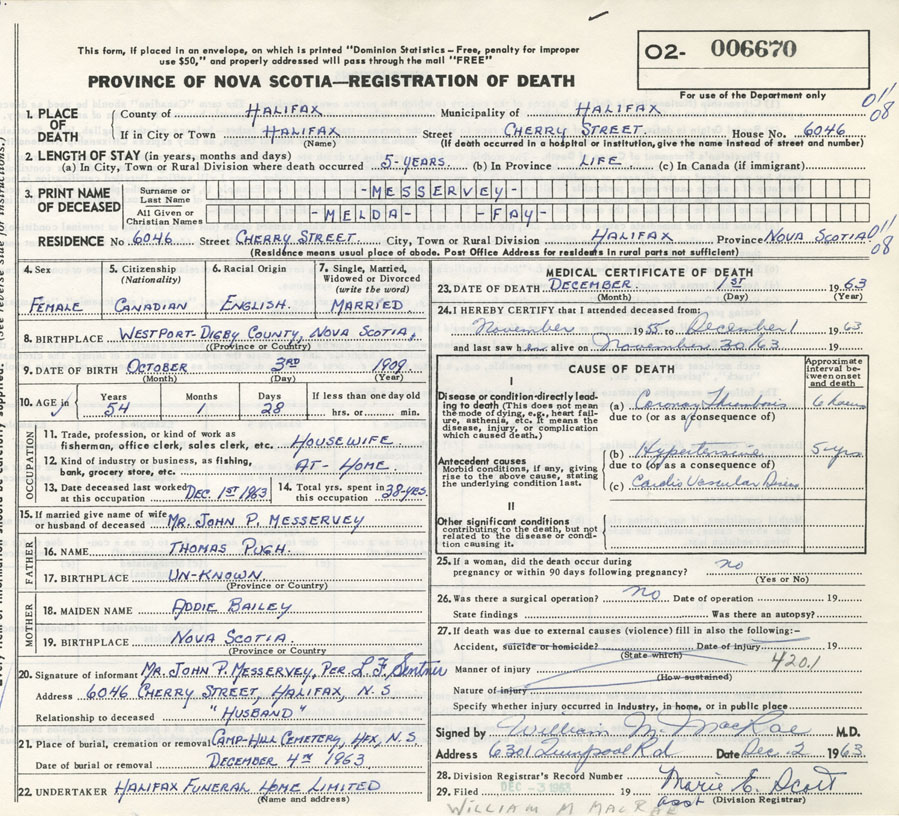 This form, if placed in an envelope, on which is printed "Dominion Statistics – Free, penalty for improper
use $50," and properly addressed will pass through the mail "FREE"
O2- 006670
For use of the Department only
PROVINCE OF NOVA SCOTIA—REGISTRATION OF DEATH
011
08
1. PLACE OF DEATH
County of HALIFAX Municipality of HALIFAX
If in City or Town HALIFAX Street CHERRY STREET. House No. 6046
(Name) (If death occurred in a hospital or institution, give the name instead of street and number)
2. LENGTH OF STAY (in years, months and days)
(a) In City, Town or Rural Division where death occurred 5-YEARS. (b) In Province LIFE (c) In Canada (if immigrant)
3. PRINT NAME OF DECEASED
Surname or Last Name -MESSERVEY-
All Given or Christian Names -MELDA- -FAY-
RESIDENCE No. 6046 Street CHERRY STREET. City, Town or Rural Division HALIFAX Province NOVA SCOTIA
011
08
(Residence means usual place of abode. Post Office Address for residents in rural parts not sufficient)
4. Sex
FEMALE
5. Citizenship (Nationality)
CANADIAN
6. Racial Origin
ENGLISH.
7. Single, Married, Widowed or Divorced (write the word)
MARRIED
8. BIRTHPLACE WESTPORT-DIGBY COUNTY, NOVA SCOTIA,
(Province or Country)
9. DATE OF BIRTH OCTOBER 3RD 1909
(Month) (Day) (Year)
10. AGE in
Years Months Days If less than one day old
54 1 28 hrs. or min.
OCCUPATION
11. Trade, profession, or kind of work as
fisherman, office clerk, sales clerk, etc. HOUSEWIFE.
12. Kind of industry or business, as fishing,
bank, grocery store, etc. AT-HOME.
13. Date deceased last worked at this occupation DEC. 1ST 1963
14. Total yrs. spent in this occupation 38-YRS.
15. If married give name of wife
or husband of deceased MR. JOHN P. MESSERVEY
FATHER
16. NAME THOMAS PUGH.
17. BIRTHPLACE UN-KNOWN.
(Province or Country)
MOTHER
18. MAIDEN NAME ADDIE BAILEY
19. BIRTHPLACE NOVA SCOTIA.
(Province or Country)
20. Signature of informant MR. JOHN P. MESSERVEY, PER. L.F.
Address 6046 CHERRY STREET, HALIFAX, N.S.
Relationship to deceased "HUSBAND"
21. Place of burial, cremation or removal CAMP-HILL CEMETERY, HFX, N.S.
Date of burial or removal DECEMBER 4TH 1963
22. UNDERTAKER HALIFAX FUNERAL HOME LIMITED
(Name and address)
MEDICAL CERTIFICATE OF DEATH
23. DATE OF DEATH DECEMBER. 1ST 1963
(Month) (Day) (Year)
24. I HEREBY CERTIFY that I attended deceased from:
November 1955 to December 1 1963
and last saw her alive on November 30/63
CAUSE OF DEATH
Approximate interval between onset and death
I
Disease or condition directly leading to death (This does not
mean the mode of dying, e.g., heart failure, asthenia, etc. It means the
disease, injury, or complication which caused death.)
(a) Coronary Thrombosis 6 hours
due to (or as a consequence of)
Antecedent causes
Morbid conditions, if any, giving rise to the above cause, stating
the underlying condition last.
(b) Hypertensive 5 yrs
due to (or as a consequence of)
(c) Cardio Vascular
II
Other significant conditions
contributing to the death, but not related to the disease or condition causing it.
25. If a woman, did the death occur during
pregnancy or within 90 days following pregnancy? no
(Yes or No)
26. Was there a surgical operation? no Date of operation 19
State findings Was there an autopsy?
27. If death was due to external causes (violence) fill in also the following:—
Accident, suicide or homicide? Date of injury 19
(State which)
4201
Manner of injury
(How sustained)
Nature of injury
Specify whether injury occurred in industry, in home, or in public place
Signed by William M. MacRae M.D.
Address 6301 Quinpool Rd Date Dec. 2 1963
28. Division Registrar's Record Number
29. Filed DEC - 3 1963 19 Marie E. Scott
asst (Division Registrar)
WILLIAM M MACRAE